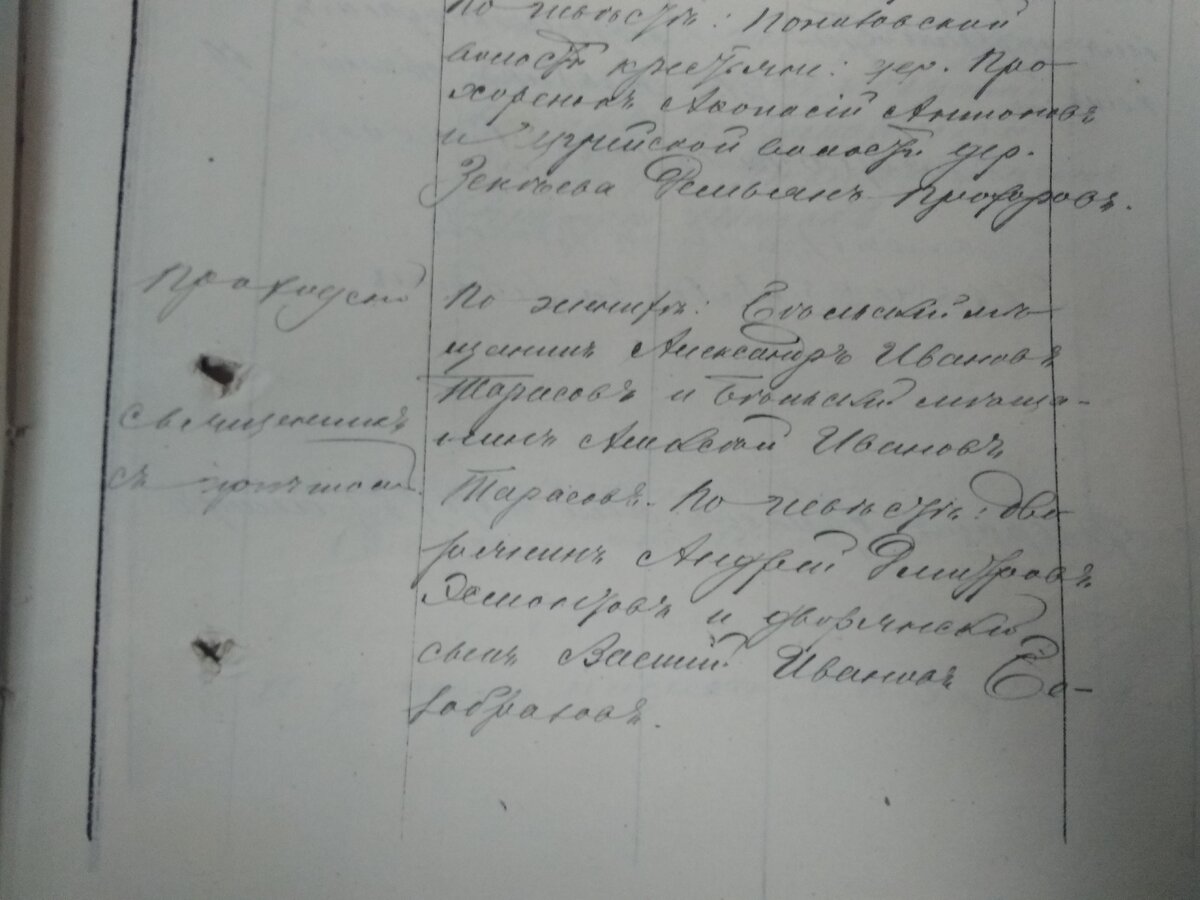 По невѣстѣ: Понизовской
волости крестьяне: дер. Про-
хоренокъ Аѳонасій Антоновъ
и волости дер.
Демьянъ Прохоровъ.
Приходскій
священникъ
съ причтомъ.
По женихѣ: Бѣльскій мѣ-
щанинъ Александръ Ивановъ
Тарасовъ и Бѣльскій мѣща-
нинъ Алексѣй Ивановъ
Тарасовъ. По невѣстѣ: дво-
рянинъ Андрей Дмитровъ
и дворянскій
сынъ Василій Ивановъ Бе-
зобразовъ.